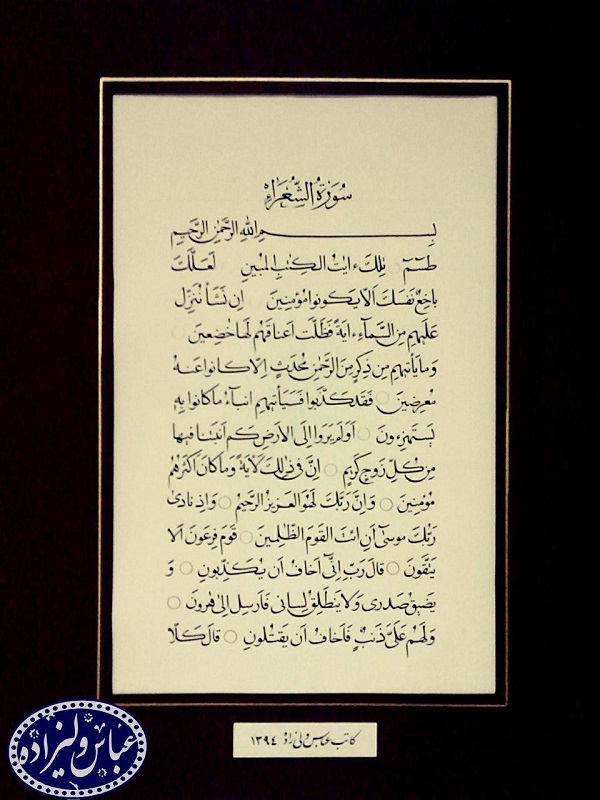 سُورَةُ الشُّعَرَاءِ
بِسْمِ اللهِ الرَّحْمٰنِ الرَّحِيمِ
طسٓمٓ تِلْكَ ءَايٰتُ الْكِتٰبِ الْمُبِينِ لَعَلَّكَ
بَاخِعٌ نَفْسَكَ اَلَّا يَكُونُوا مُؤْمِنِينَ اِنْ نَشَأْ نُنَزِّلْ
عَلَيْهِمْ مِنَ السَّمَآءِ ءَايَةً فَظَلَّتْ اَعْنَاقُهُمْ لَهَا خٰضِعِينَ
وَمَا يَأْتِيهِمْ مِنْ ذِكْرٍ مِنَ الرَّحْمٰنِ مُحْدَثٍ اِلَّا كَانُوا عَنْهُ
مُعْرِضِينَ ○ فَقَدْ كَذَّبُوا فَسَيَأْتِيهِمْ اَنْبٰٓاءُ مَا كَانُوا بِهِ
يَسْتَهْزِءُونَ ○ اَوَلَمْ يَرَوْا اِلَى الْاَرْضِ كَمْ اَنْبَتْنَا فِيهَا
مِنْ كُلِّ زَوْجٍ كَرِيمٍ ○ اِنَّ فِى ذٰلِكَ لَاٰيَةً وَمَا كَانَ اَكْثَرُهُمْ
مُؤْمِنِينَ ○ وَاِنَّ رَبَّكَ لَهُوَ الْعَزِيزُ الرَّحِيمُ ○ وَاِذْ نَادٰى
رَبُّكَ مُوسٰٓى اَنِ ائْتِ الْقَوْمَ الظّٰلِمِينَ ○ قَوْمَ فِرْعَوْنَ اَلَا
يَتَّقُونَ ○ قَالَ رَبِّ اِنِّٓى اَخَافُ اَنْ يُكَذِّبُونِ ○ وَ
يَضِيقُ صَدْرِى وَلَا يَنْطَلِقُ لِسَانِى فَاَرْسِلْ اِلٰى هٰرُونَ ○
وَلَهُمْ عَلَىَّ ذَنْبٌ فَاَخَافُ اَنْ يَقْتُلُونِ ○ قَالَ كَلَّا
کاتب عباس ولی زاد ۱۳۹٤
عباس ولیزاده